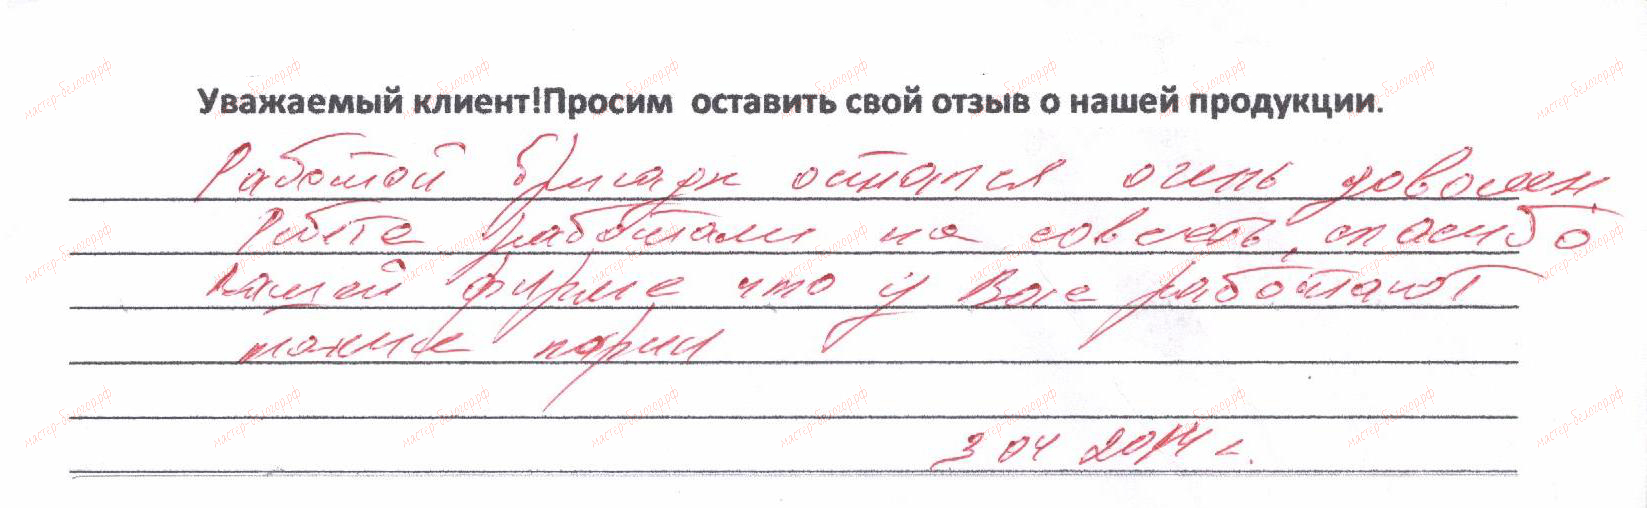 Уважаемый клиент!Просим оставить свой отзыв о нашей продукции.
Работой бригады остался очень доволен
Ребята работали на совесть, спасибо
Вашей фирме что у Вас работают
такие парни
3 04 2014 г.
мастер-белогор.рф